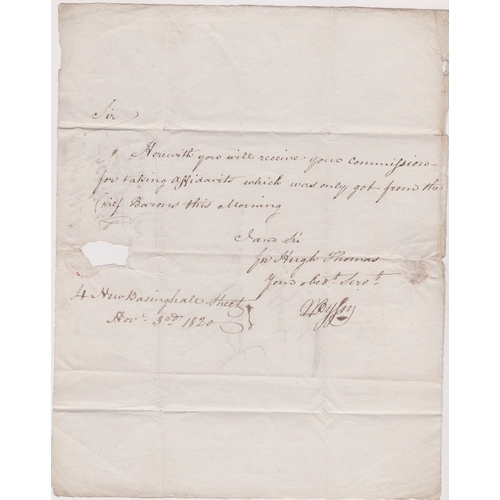 Sir
Herewith you will receive your commission
for taking Affidavits which was only got from the
Chief Barons this Morning
I am Sir
for Hugh Thomas
Your obed.t Serv.t
4 New Basinghall Street
Nov.r 3rd 1820